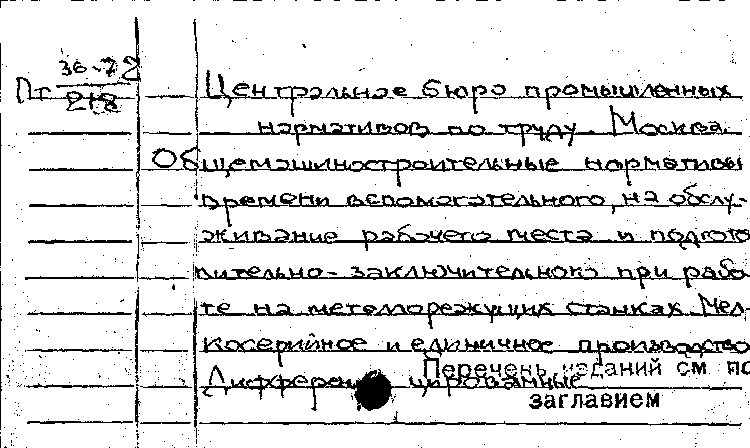 36-72
Пт 218
Центральное бюро промышленных
нормативов по труду. Москва.
Общемашиностроительные нормативы
времени вспомогательного, на обслу-
живание рабочего места и подгото
вительно-заключительного при рабо
те на металлорежущих станках. Мел
косерийное и единичное производство
Дифференцированные
Перечень изданий см по
заглавием